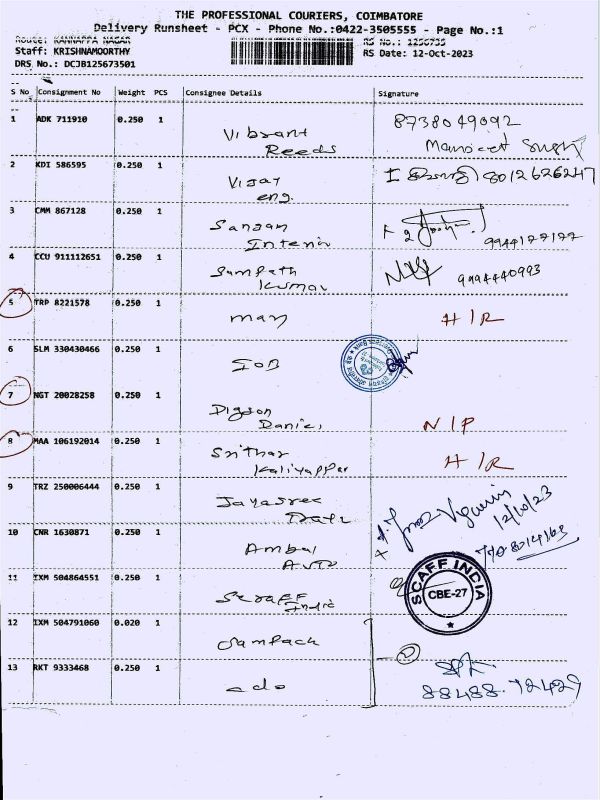 THE PROFESSIONAL COURIERS, COIMBATORE
Delivery Runsheet - PCX - Phone No.:0422-3505555 - Page No.:1
Route: KANNAPPA NAGAR
RS No.: 1256735
Staff: KRISHNAMOORTHY
RS Date: 12-Oct-2023
DRS No.: DCJB125673501
S No Consignment No Weight PCS Consignee Details Signature
1 ADK 711910 0.250 1 8738049092
Vibrant
Reeds Manjeet Singh
2 KDI 586595 0.250 1 8012626247
Vijay
eng.
3 CMM 867128 0.250 1
Sanjan
Interio 9944177177
4 CCU 911112651 0.250 1
Sampath
Kumar 9994440993
5 TRP 8221578 0.250 1
may H/R
6 SLM 330430466 0.250 1
IOB
7 NGT 20028258 0.250 1
Daniel N/P
8 MAA 106192014 0.250 1
Srithar
Kaliyappar H/R
9 TRZ 250006444 0.250 1
Jayasree
12/10/23
10 CNR 1630871 0.250 1
Ambal
Auto
11 IXM 504864551 0.250 1
Scaff
India
SCAFF INDIA
CBE-27
12 IXM 504791060 0.020 1
Sampack
13 RKT 9333468 0.250 1
- do
88488.72429